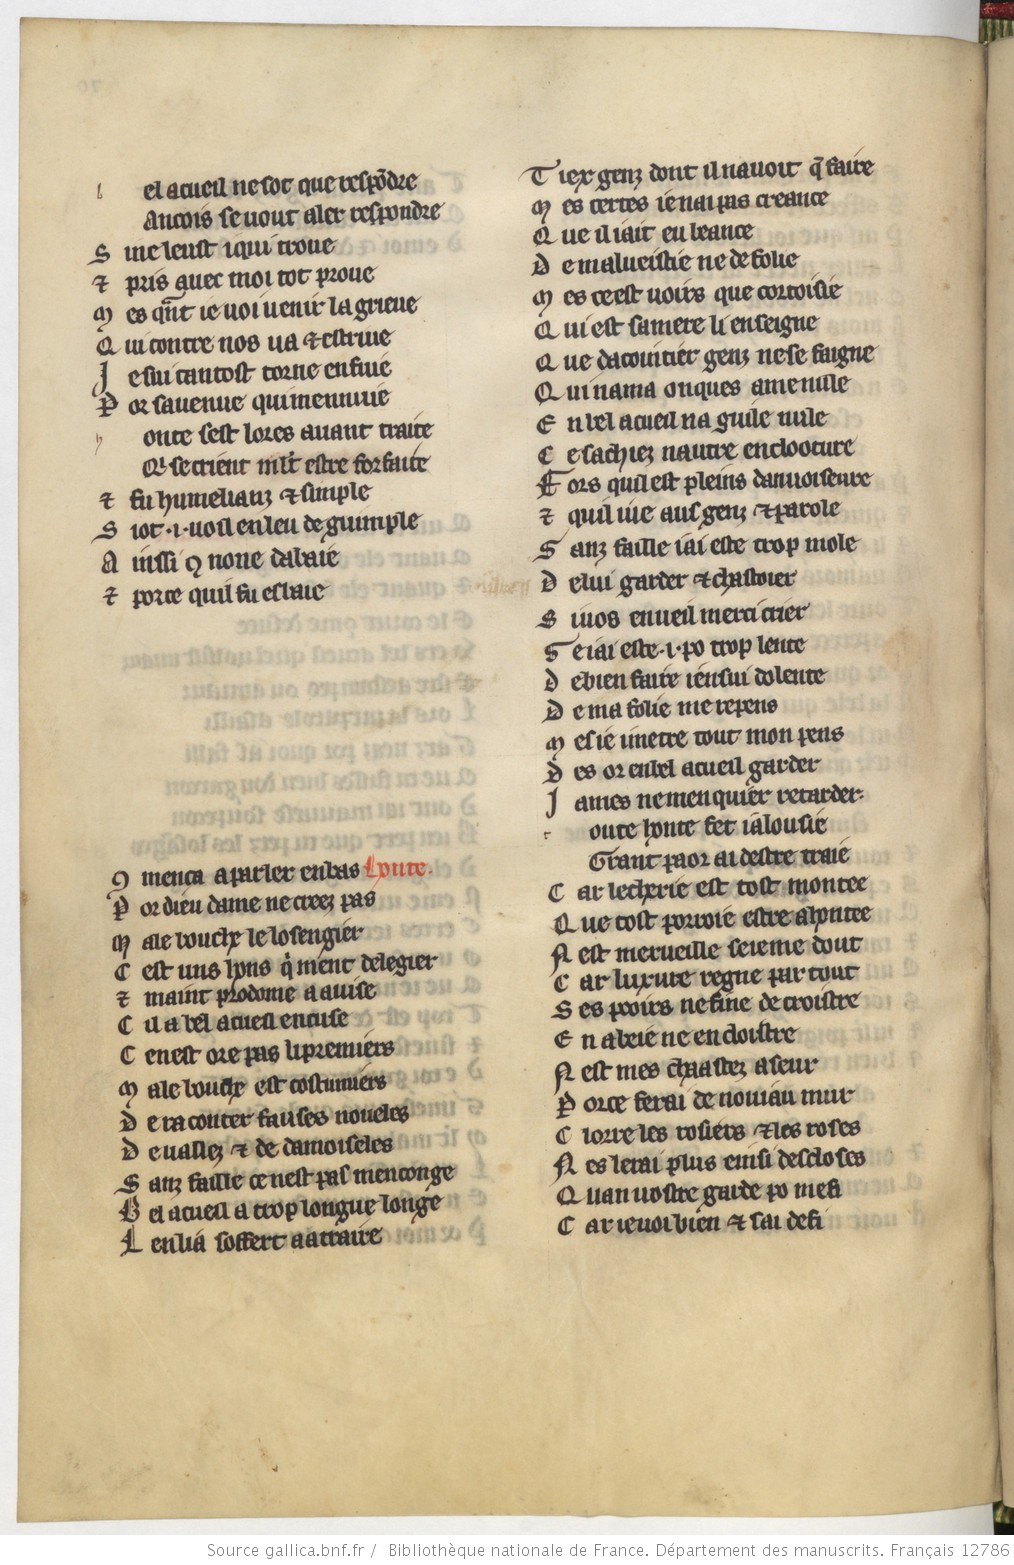 b el acueil ne sot que respõdre
Ancois se vout aler respondre
S il ne leust iqui troue
⁊ pris auec moi tot proue
M es qñt ie uoi uenir la grieue
Q ui contre nos ua ⁊ estriue
J e sui tantost torne en fuie
P or sauenue qui mennuie
h onte sest lores auant traite
Q̃ se crient ml̃t estre forfaite
⁊ fu humelianz ⁊ simple
S i ot .i. uoil en leu de guimple
A uissi ꝯ none dabaie
⁊ por ce quil fu eslaie
ꝯ menca a parler en bas honte.
P or dieu dame ne creez pas
M ale bouche le losengier
C est uns hons q̃ ment de legier
⁊ maint prodome a auise
C il a bel acueil encuse
C e nest ore pas li premiers
M ale bouche est costumiers
D e raconter fauses noueles
D e uallez ⁊ de damoiseles
S anz faille ce nest pas menconge
B el acueil a trop longue longe
L en li a soffert a atraire
T iex genz dont il nauoit q̃ faire
M es certes ie nai pas creance
Q ue il i ait eu beance
D e malueistie ne de folie
M es ce est uoirs que cortoisie
Q ui est sa mere li enseigne
Q ue dacointier genz ne se faigne
Q ui nama onques ame nulle
E n bel acueil na guile nule
C e sachiez nautre enclooture
F ors quil est pleins danuoiseure
⁊ quil iue aus genz ⁊ parole
S anz faille iai este trop mole
D e lui garder ⁊ chastoier
S i uos en ueil merci crier
S e iai este .i. po trop lente
D e bien faire ien sui dolente
D e ma folie me repens
M es ie metre tout mon pens
D es or en bel acueil garder
J ames ne men quier retarder.
h onte honte fet ialousie
Grant paor ai destre traie
C ar lecherie est tost montee
Q ue tost porroie estre ahontee
N est merueille se ie me dout
C ar luxure regne par tout
S es pooirs ne fine de croistre
E n abeie ne en cloistre
N est mes chastez a seur
P or ce ferai de nouiau mur
C lorre les rosiers ⁊ les roses
N es lerai plus einsi descloses
Q uan uostre garde po me fi
C ar ie uoi bien ⁊ sai defi
Source gallica.bnf.fr / Bibliothèque nationale de France. Département des manuscrits. Français 12786